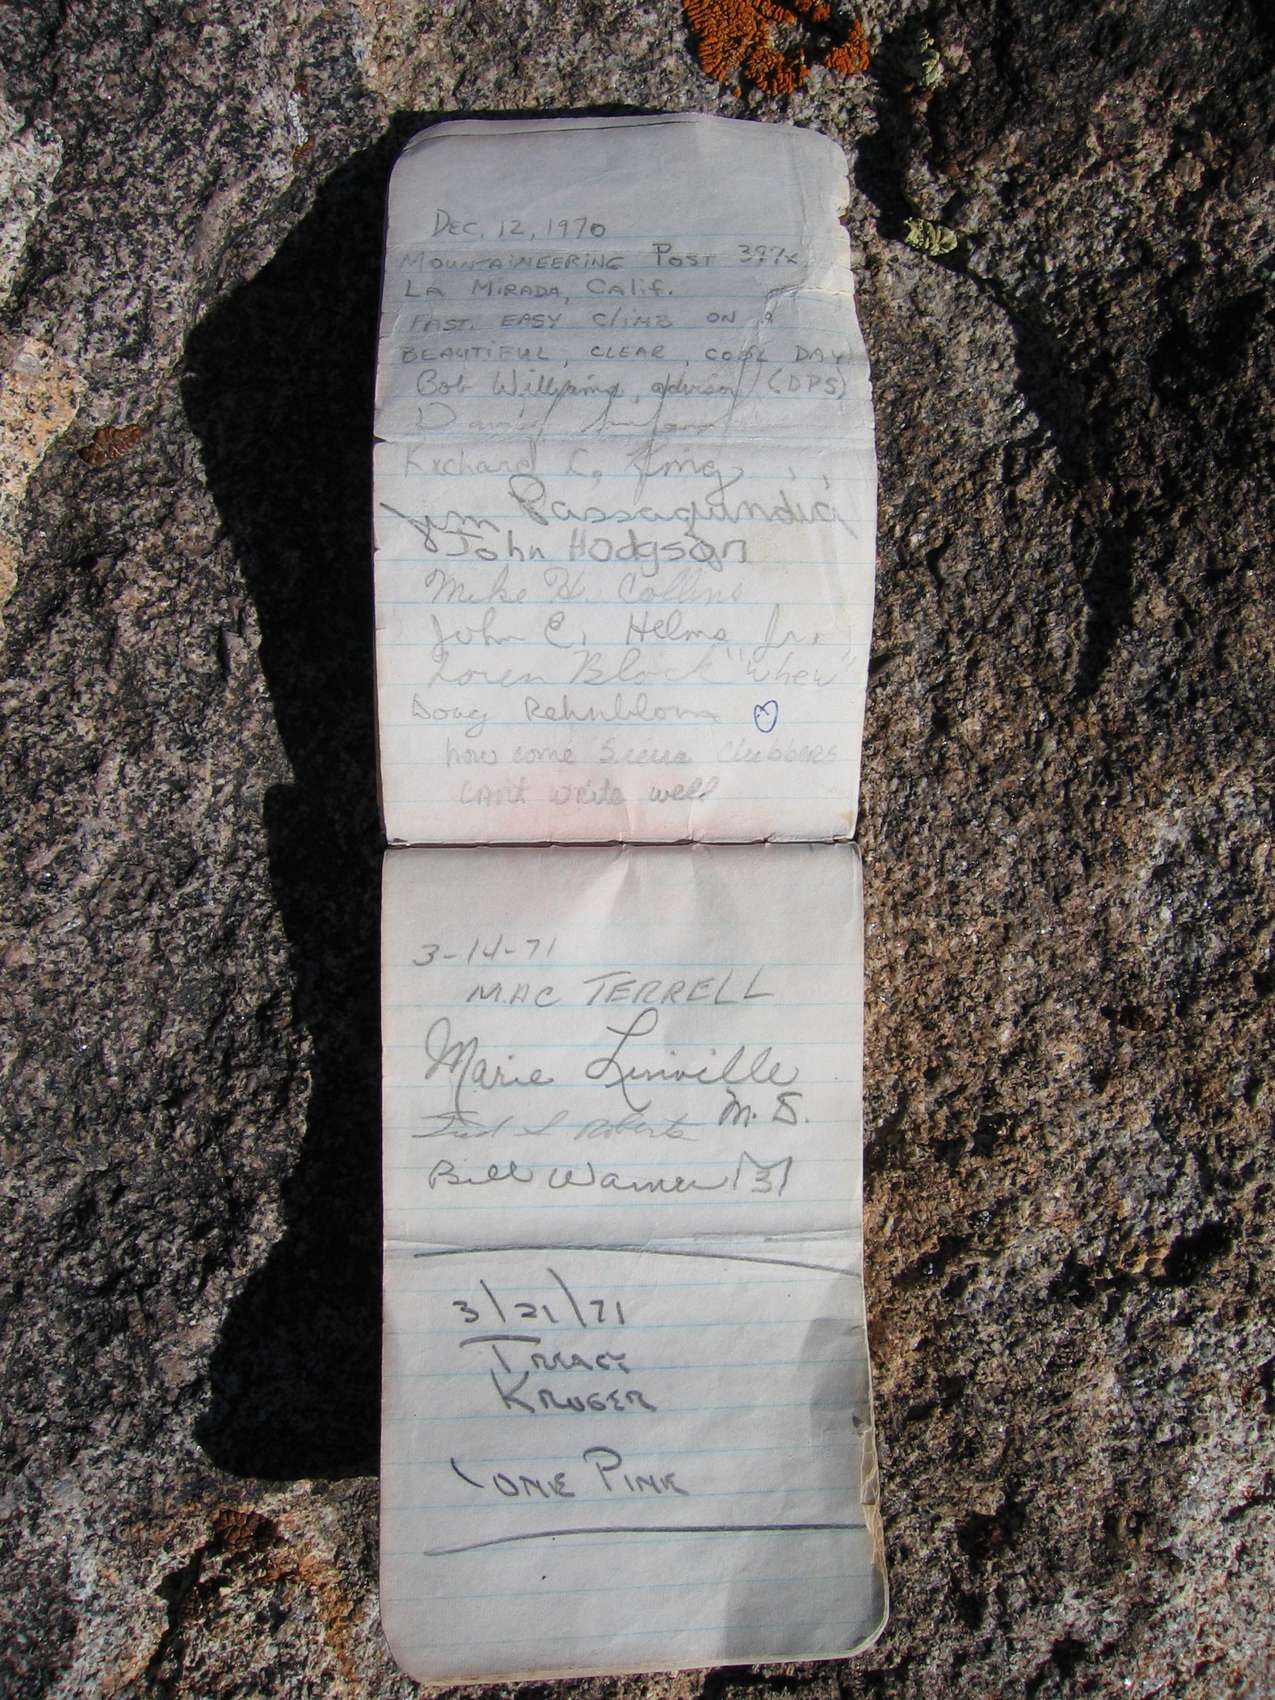 DEC. 12, 1970
MOUNTAINEERING POST 397X
LA MIRADA, CALIF.
FAST, EASY CLIMB ON a
BEAUTIFUL, CLEAR, COOL DAY
Bob advisor (DPS)
David
Richard C. King
Jim Passaquindici
John Hodgson
Mike H. Collins
John C. Helms Jr.
Loren Block "Whew"
Doug Rehnblom
how come Sierra Clubbers
can't write well
3-14-71
MAC TERRELL
Marie Linville
M.S.
L Roberts
Bill Warner
3/21/71
KRUGER
LONE PINE